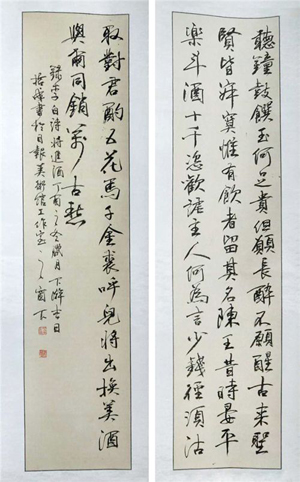 聽鐘鼓饌玉何足貴但願長醉不願醒古來聖
賢皆寂寞惟有飲者留其名陳王昔時宴平
樂斗酒十千恣歡謔主人何為言少錢徑須沽
取對君酌五花馬千金裘呼兒將出換美酒
與爾同銷萬古愁
錄李白詩將進酒丁酉之冬臘月下浣吉日
書於日報美術館工作室之窗下